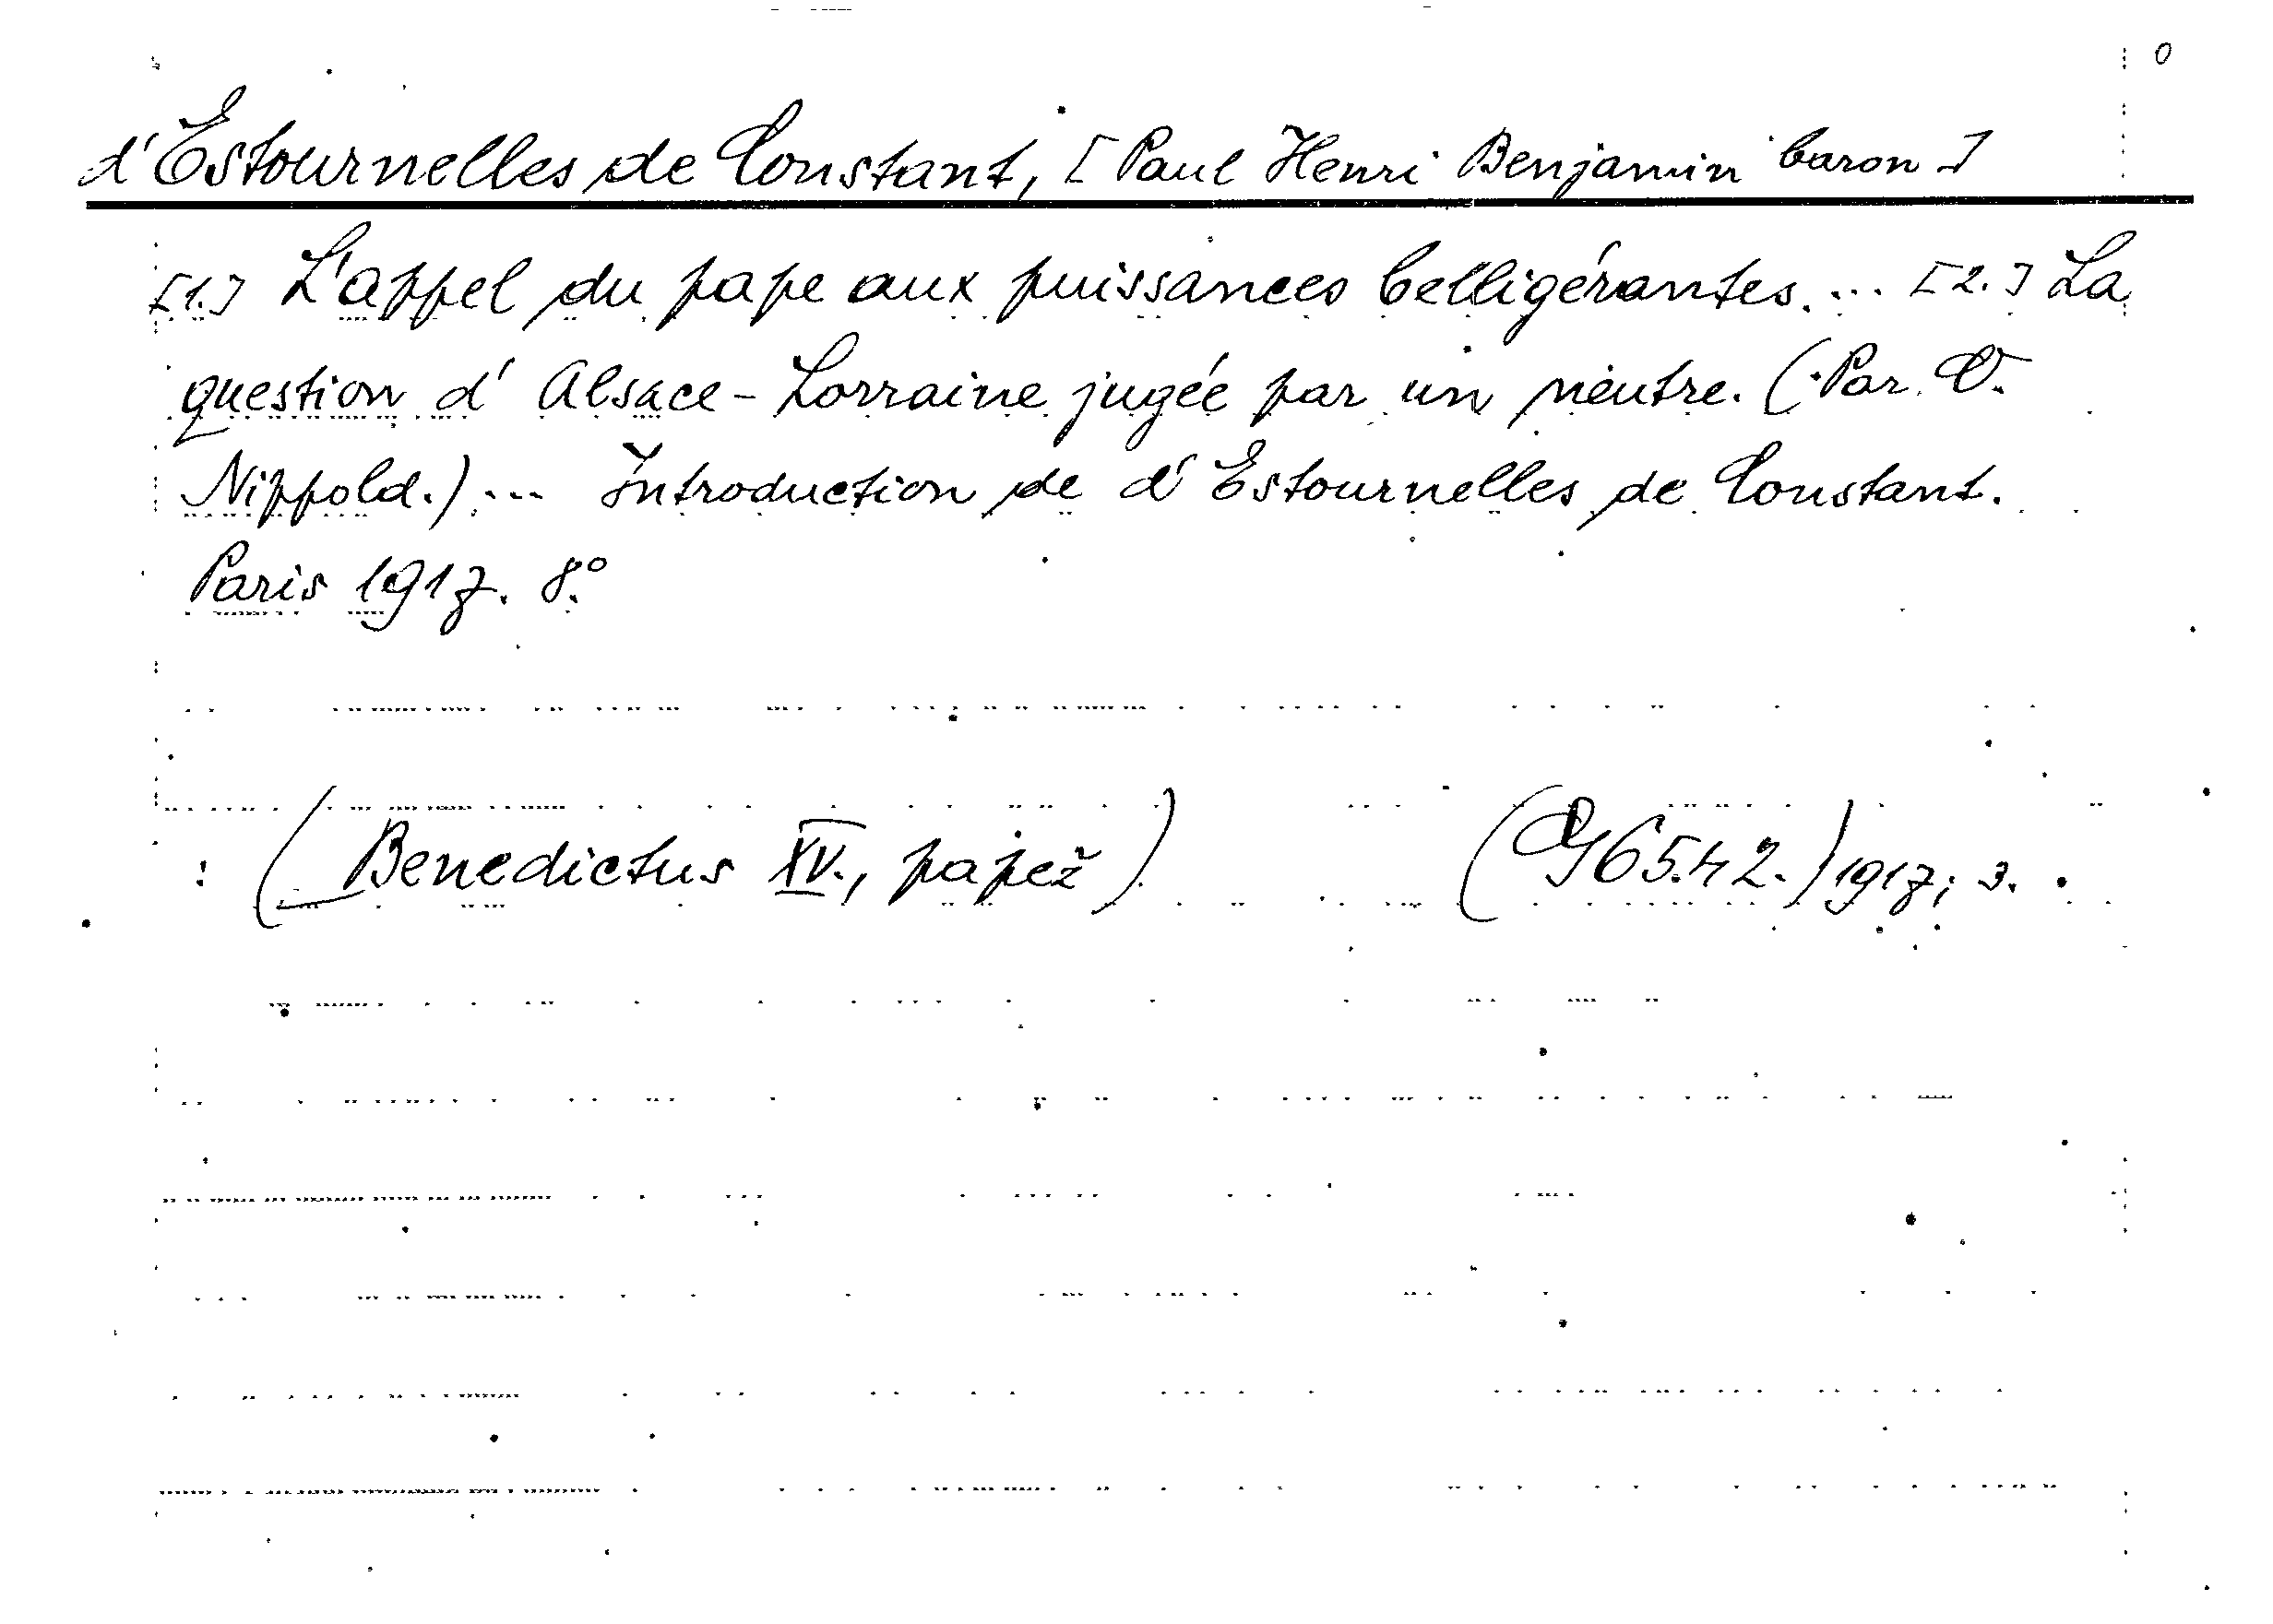 0
d'Estournelles de Constant, [Paul Henri Benjamin baron]
[1.] L'appel du pape aux puissances belligérantes. ... [2.] La
question d'Alsace-Lorraine jugée par un neutre. (Par O.
Nippold.) ... Introduction de d'Estournelles de Constant.
Paris 1917. 8°.
: (Benedictus XV., papež) 65.42.) 1917; 3.